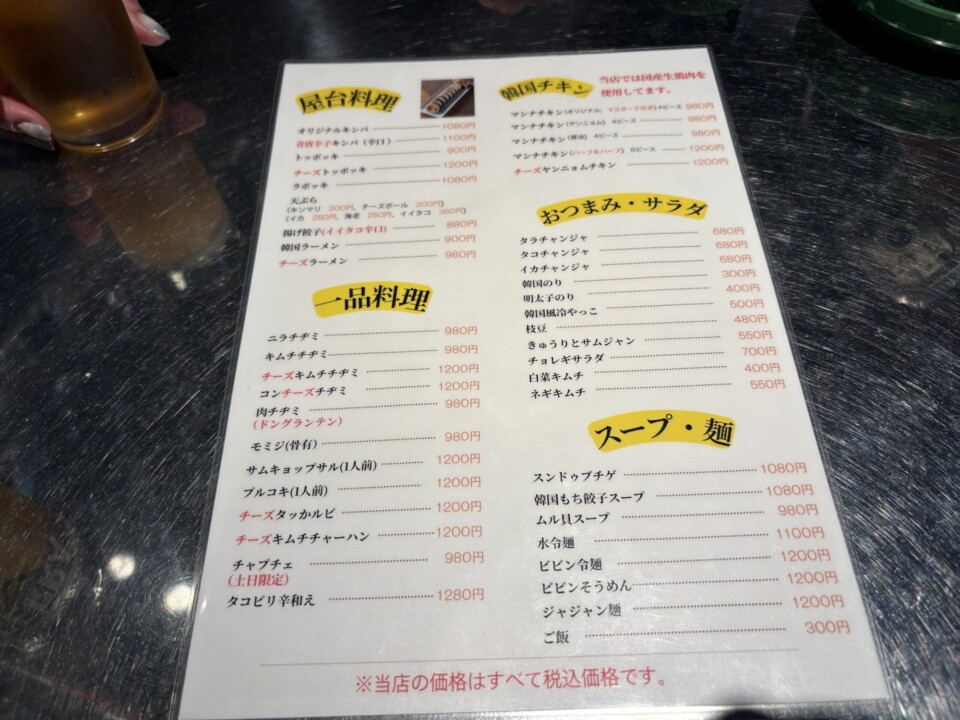 屋台料理
オリジナルキンパ 1080円
青唐辛子キンパ（辛口） 1100円
トッポッキ 900円
チーズトッポッキ 1200円
ラポッキ 1080円
天ぷら
（キンマリ 200円、チーズボール 200円）
（イカ 250円、海老 250円、イイタコ 350円）
揚げ餃子(イイタコ辛口) 880円
韓国ラーメン 900円
チーズラーメン 980円
一品料理
ニラチヂミ 980円
キムチチヂミ 980円
チーズキムチチヂミ 1200円
コンチーズチヂミ 1200円
肉チヂミ 980円
（ドングランテン）
モミジ(骨有) 980円
サムキョップサル(1人前) 1200円
プルコキ(1人前) 1200円
チーズタッカルビ 1200円
チーズキムチチャーハン 1200円
チャプチェ 980円
（土日限定）
タコピリ辛和え 1280円
韓国チキン
当店では国産生鶏肉を
使用してます。
マンナチキン(オリジナル、マスタード付き)4ピース 980円
マンナチキン(ヤンニョム) 4ピース 980円
マンナチキン(醤油) 4ピース 980円
マンナチキン(ハーフ&ハーフ) 6ピース 1200円
チーズヤンニョムチキン 1200円
おつまみ・サラダ
タラチャンジャ 680円
タコチャンジャ 680円
イカチャンジャ 680円
韓国のり 300円
明太子のり 400円
韓国風冷やっこ 500円
枝豆 480円
きゅうりとサムジャン 550円
チョレギサラダ 700円
白菜キムチ 400円
ネギキムチ 550円
スープ・麺
スンドゥブチゲ 1080円
韓国もち餃子スープ 1080円
ムル貝スープ 980円
水令麺 1100円
ビビン令麺 1200円
ビビンそうめん 1200円
ジャジャン麺 1200円
ご飯 300円
※当店の価格はすべて税込価格です。